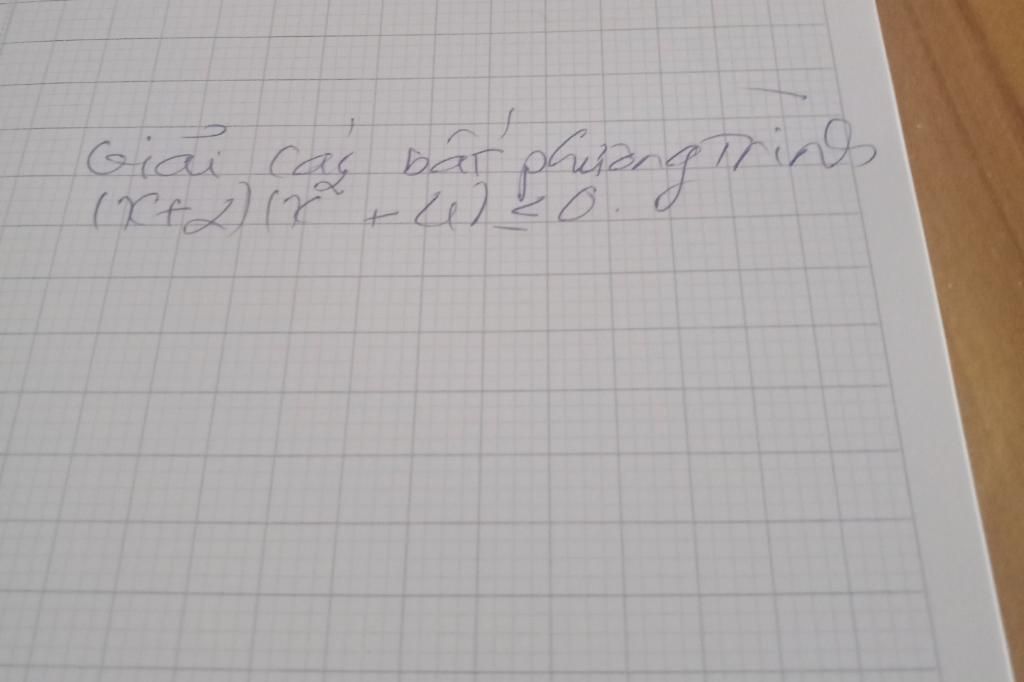 Giải các bất phương trình
(x+2)(x² + 4) ≤ 0.